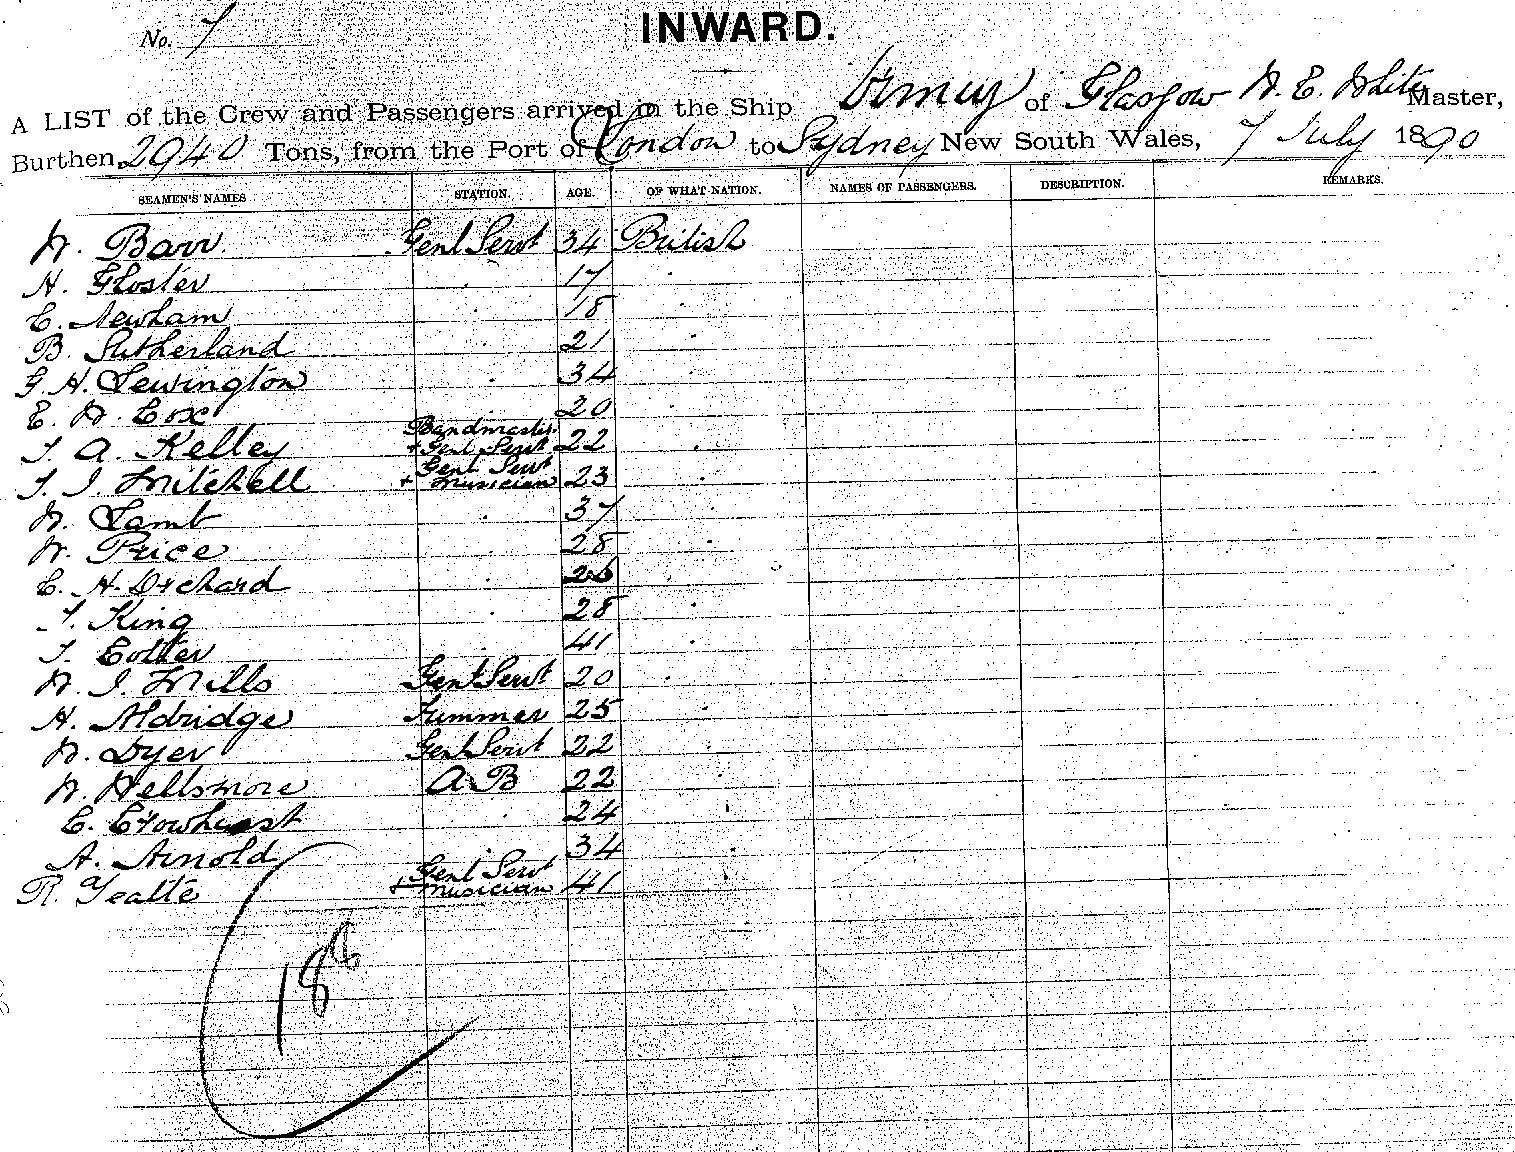 No. 7
INWARD.
A LIST of the Crew and Passengers arrived in the Ship Ormuz of Glasgow W. E. White Master,
Burthen 2940 Tons, from the Port of London to Sydney New South Wales, 7 July 1890
SEAMEN'S NAMES STATION. AGE. OF WHAT NATION. NAMES OF PASSENGERS. DESCRIPTION. REMARKS.
W. Barr Genl Servt 34 British
H. Gloster " 17 "
E. Newham " 18 "
B. Sutherland " 21 "
G. H. Lewington " 34 "
E. W. Cox 20 "
Bandmaster
T. A. Kelley + Genl Servt 22 "
Genl Servt
T. J. Mitchell + Musician 23 "
W. Lamb " 37 "
W. Price " 28 "
E. H. Orchard " 26 "
F. King " 28 "
T. Cotter 41 "
W. J. Mills Genl Servt 20 "
H. Aldridge Trimmer 25 "
W. Dyer Genl Servt 22 "
W. Hellsmore A B 22 "
E. Crowhurst " 24 "
A. Arnold 34 "
Genl Servt
R. + Musician 41 "